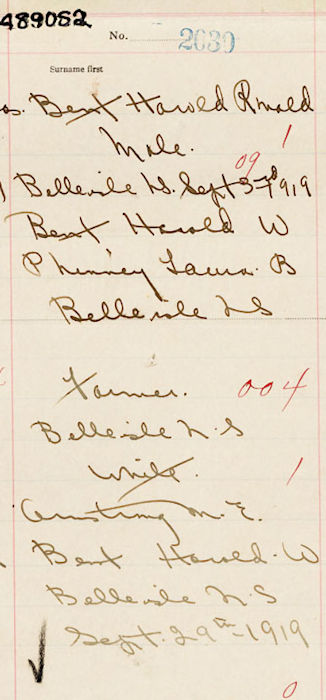 489052
No. 2630
Surname first
Bent Harold Ronald
1
Male.
09
Belleisle N.S. Sept 3rd 1919
Bent Harold W
Phinney Laura B
Belleisle N S
Farmer. 004
Belleisle N. S
White. 1
Armstrong M. E.
Bent Harold. W
Belleisle N S
Sept. 29th - 1919
0